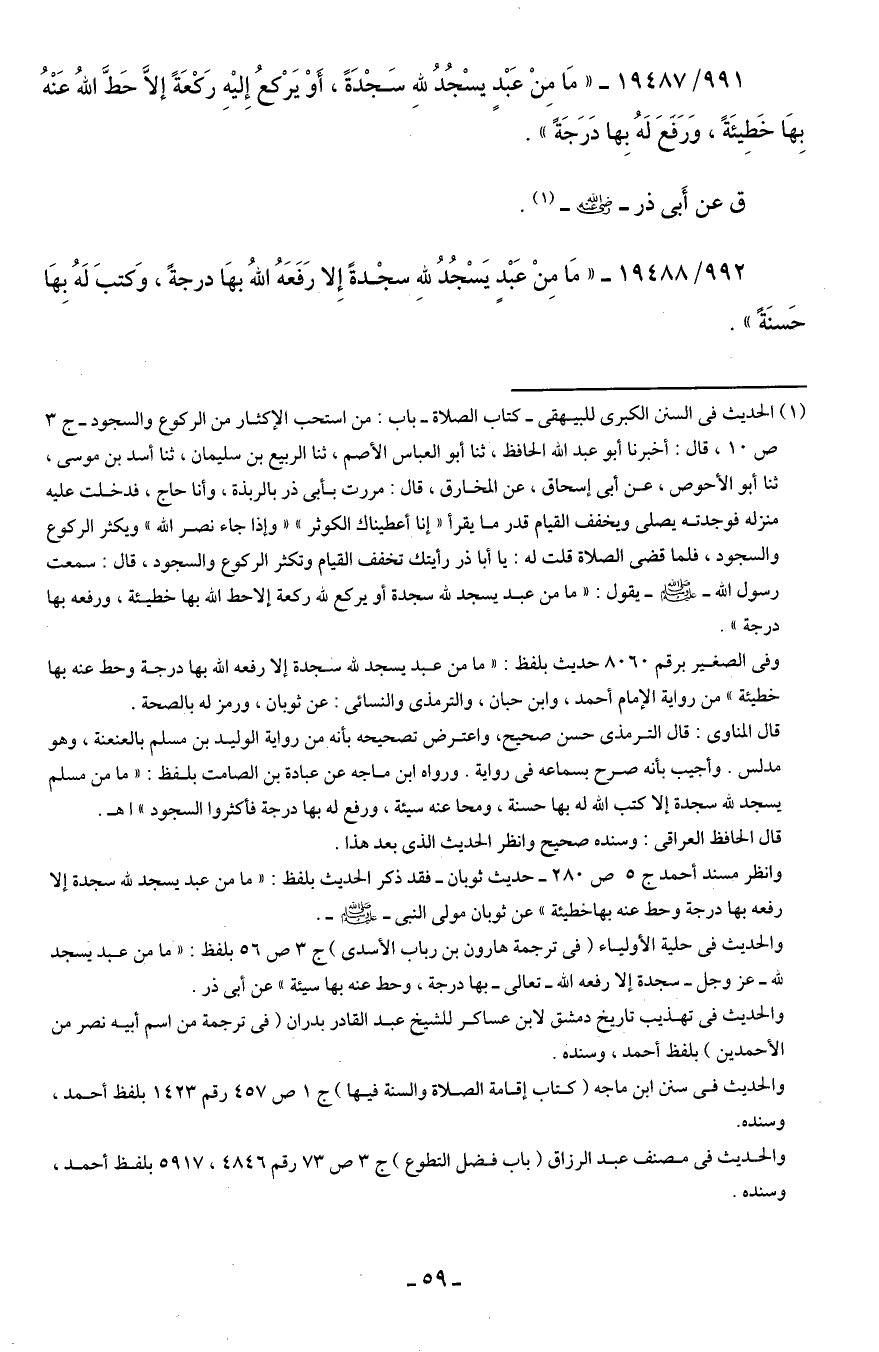 ٩٩١/ ١٩٤٨٧ ـ « مَا مِنْ عَبْدٍ يسْجُدُ للهِ سَـجْدَةً ، أَوْ يَرْكعُ إِلَيْهِ رَكْعَةً إِلاَّ حَطَّ اللهُ عَنْهُ
بِهَا خَطِيئَةً ، ورَفَعَ لَهُ بِها دَرَجَةً » .
ق عن أَبى ذر ـ رضي الله عنه ـ (١) .
٩٩٢/ ١٩٤٨٨ ـ « مَا مِنْ عَبْدٍ يَسْجُدُ للهِ سجْـدةً إِلا رَفَعَهُ اللهُ بهَا درجةً ، وَكتبَ لَهُ بِهَا
حَسنَةً » .
(١) الحديث فى السنن الكبرى للبيـهقى ـ كتاب الصلاة ـ باب : من استحب الإكثـار من الركوع والسجود ـ ج ٣
ص ١٠ ، قال : أخبرنا أبو عبد الله الحافظ ، ثنا أبو العباس الأصم ، ثنا الربيع بن سليمان ، ثنا أسد بن موسى ،
ثنا أبو الأحوص ، عـن أبى إسحاق ، عن المخارق ، قال : مررت بـأبى ذر بالربذة ، وأنا حاج ، فدخلت عليه
منزله فوجدتـه يصلى ويخفف القيام قدر مـا يقرأ « إنا أعطيناك الكوثر » « وإذا جاء نصـر الله » ويكثر الركوع
والسجود ، فلما قضى الصلاة قلت له : يا أبا ذر رأيتك تخفف القيام وتكثر الركوع والسجود ، قال : سمعت
رسول الله ـ ﷺ ـ يقول : « ما من عبـد يسجد لله سجدة أو يركع لله ركعة إلاحط الله بها خطيـئة ، ورفعه بها
درجة » .
وفى الصغير برقم ٨٠٦٠ حديث بلفظ : « ما من عـبد يسجد لله سـجدة إلا رفعه الله بها درجـة وحط عنه بها
خطيئة » من رواية الإمام أحمد ، وابن حبان ، والترمذى والنسائى : عن ثوبان ، ورمز له بالصحة .
قال المناوى : قال التـرمذى حسن صحيح، واعتـرض تصحيحه بأنه من رواية الوليـد بن مسلم بالعنعنة ، وهو
مدلس . وأجيب بأنه صـرح بسماعه فى رواية . ورواه ابن مـاجه عن عبادة بن الصامت بلـفظ : « ما من مسلم
يسجد لله سجدة إلا كتب الله له بها حسنة ، ومحا عنه سيئة ، ورفع له بها درجة فأكثروا السجود » ا هـ .
قال الحافظ العراقى : وسنده صحيح وانظر الحديث الذى بعد هذا .
وانظر مسند أحمد ج ٥ ص ٢٨٠ ـ حديث ثوبان ـ فقد ذكر الحديث بلفظ : « ما من عبد يسجد لله سجدة إلا
رفعه بها درجة وحط عنه بهاخطيئة » عن ثوبان مولى النبى ـ ﷺ ـ .
والحديث فى حلية الأوليـاء ( فى ترجمة هارون بن رباب الأسدى ) ج ٣ ص ٥٦ بلفظ : « ما من عـبد يسجد
لله ـ عز وجل ـ سجدة إلا رفعه الله ـ تعالى ـ بها درجة ، وحط عنه بها سيئة » عن أبى ذر .
والحديث فى تهـذيب تاريخ دمشق لابن عساكـر للشيخ عبـد القادر بدران ( فى ترجمة من اسم أبيـه نصر من
الأحمدين ) بلفظ أحمد ، وسنده .
والحديث فـى سنن ابن ماجه ( كـتاب إقـامة الصـلاة والسنة فيـها ) ج ١ ص ٤٥٧ رقم ١٤٢٣ بلفظ أحـمد ،
وسنده.
والحـديث فى مـصنف عبـد الرزاق ( باب فـضل التطوع ) ج ٣ ص ٧٣ رقم ٤٨٤٦ ، ٥٩١٧ بلفـظ أحمـد ،
وسنده .
ـ ٥٩ ـ